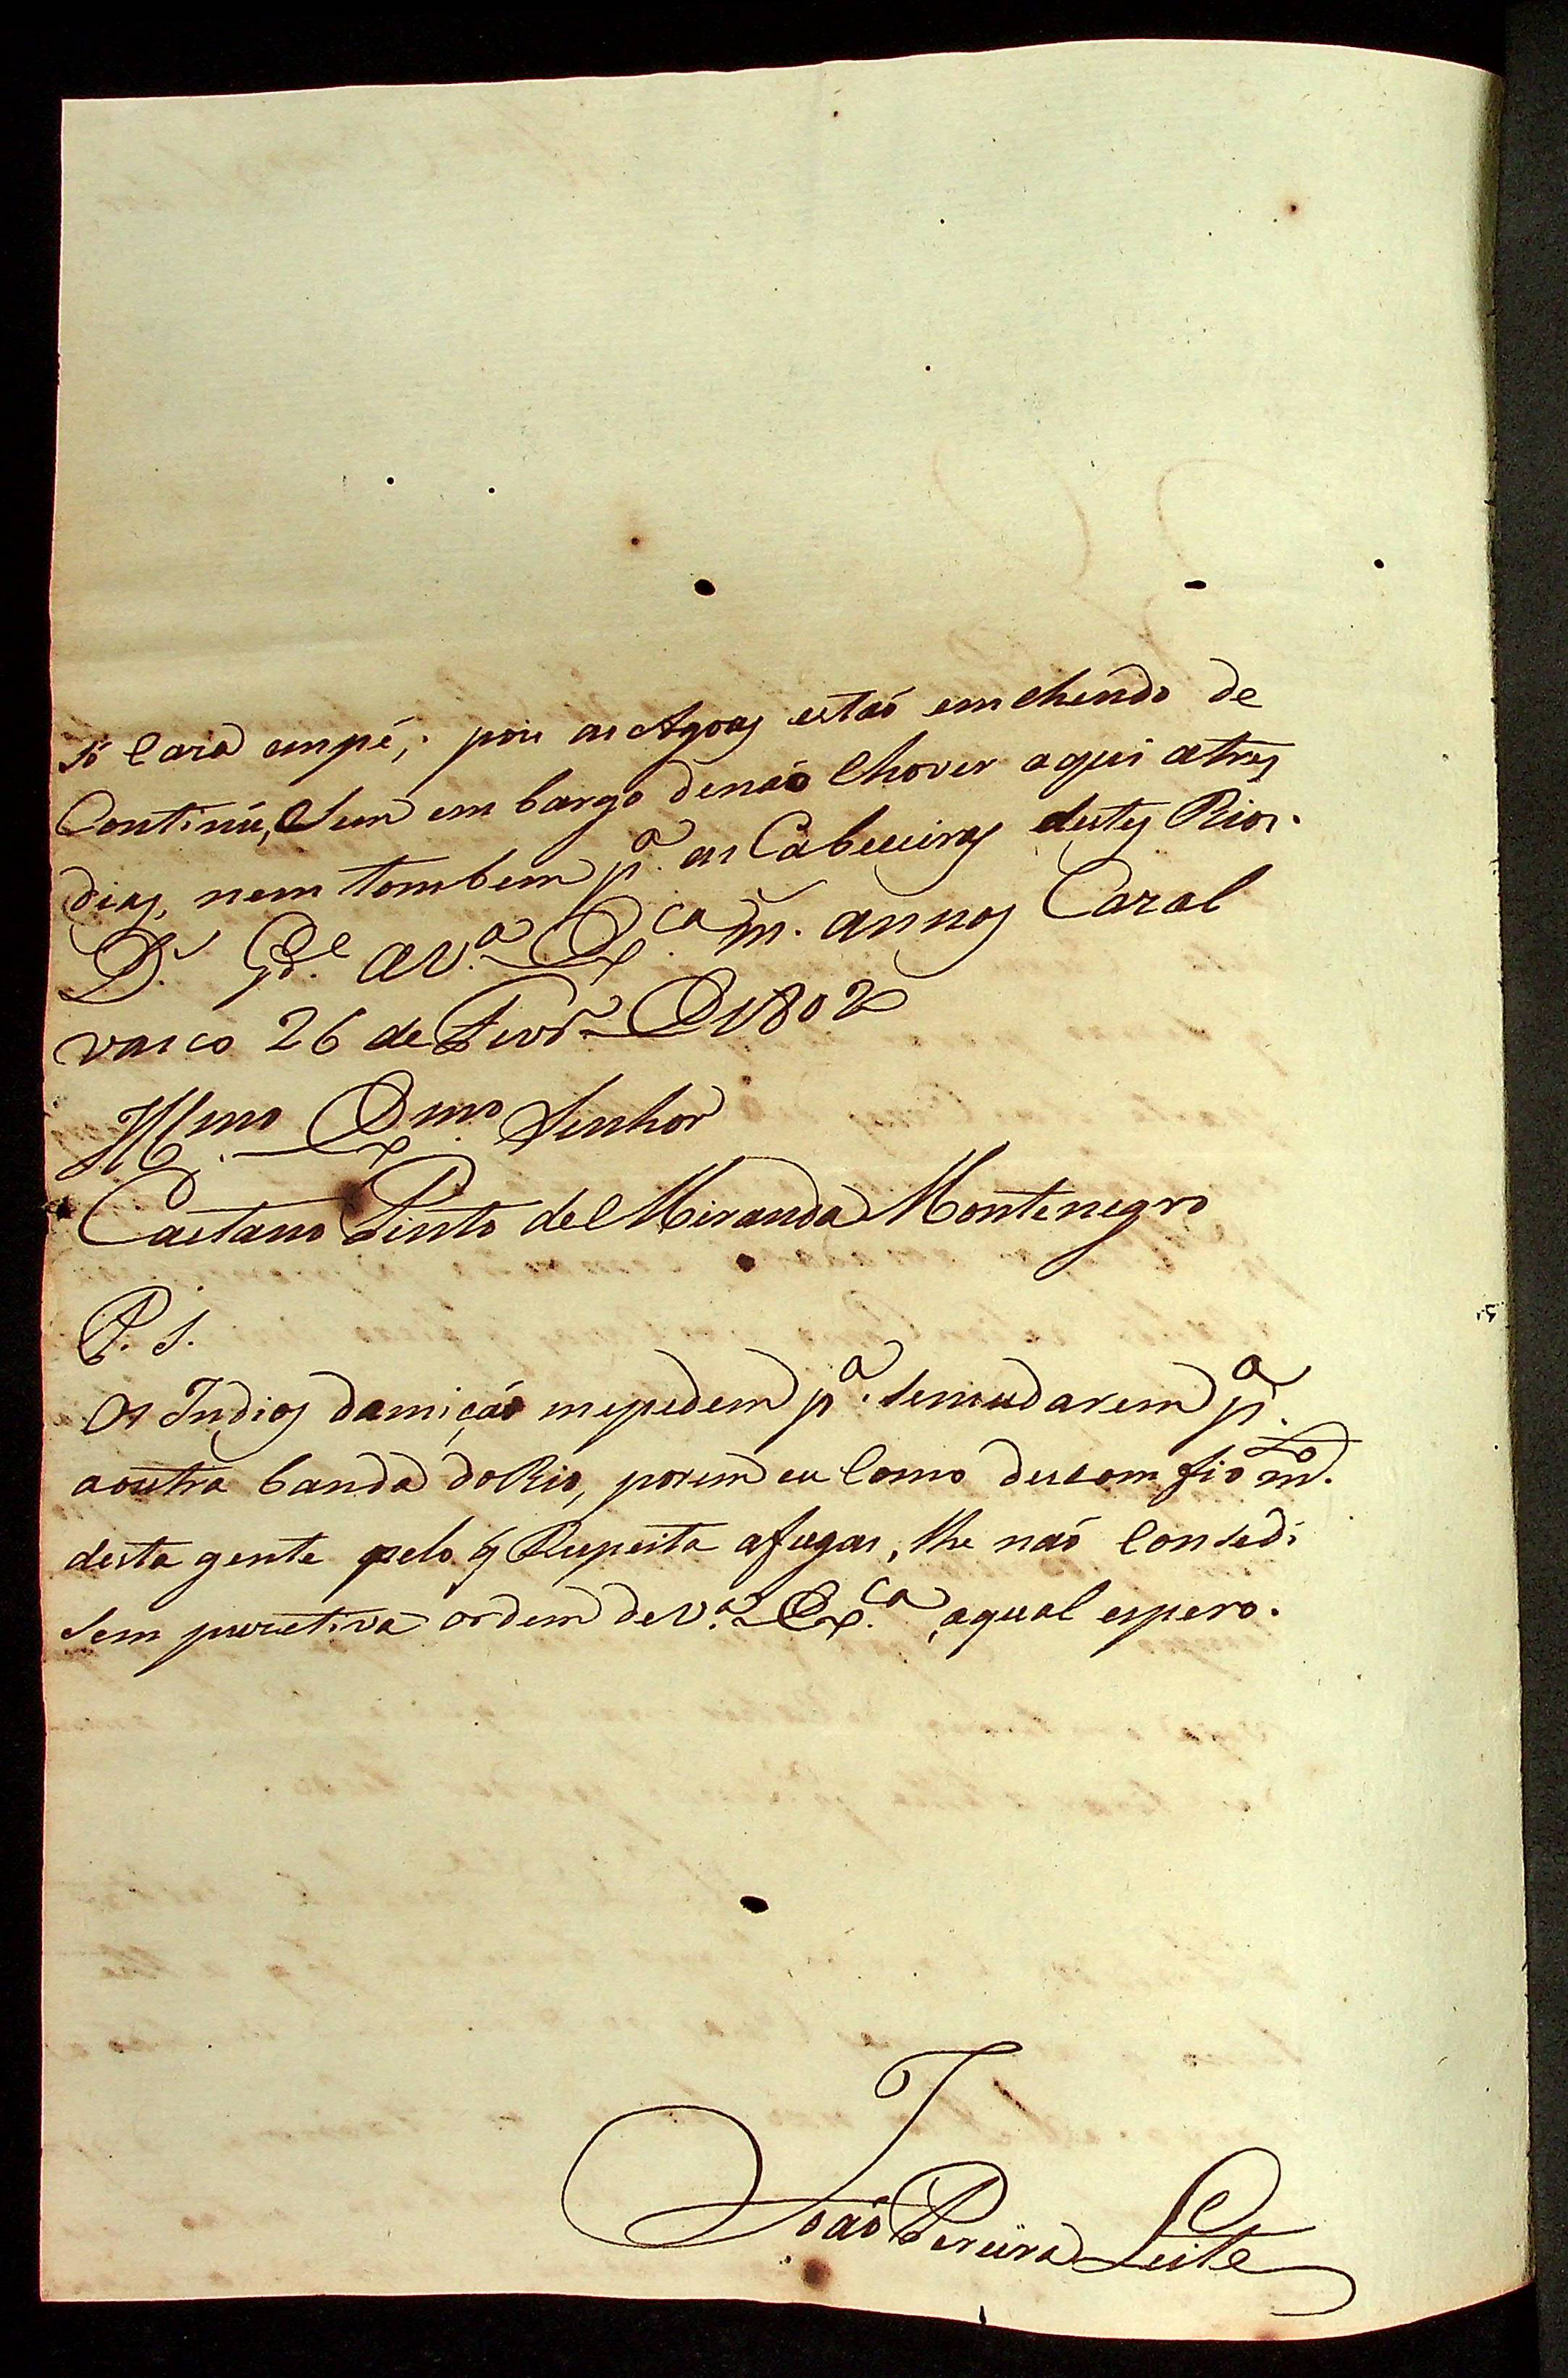 só Caza em pé; pois as Agoas estaó emchendo de
Continú, Sem em bargo denaó Chover aqui atres
dias, nem tombem p.ª as Cabeceiras destes Rios.
D.s G.de a V.ª Ex.ca m. annos Cazal
vasco 26 de Fevr.º D 1802
Ill.mo Ex.mo Senhor
Caetano Pinto de Miranda Montenegro
P. S.
Os Indios damiçaó mepedem p.ª semudarem p.ª
aoutra banda do Rio, porem eu Como descomfio m.to
desta gente pelo q Respeita afugas, lhe naó Consedi
sem puzetiva ordem de V.ª Ex.ca, aqual espero.
Joaó Pereira Leite